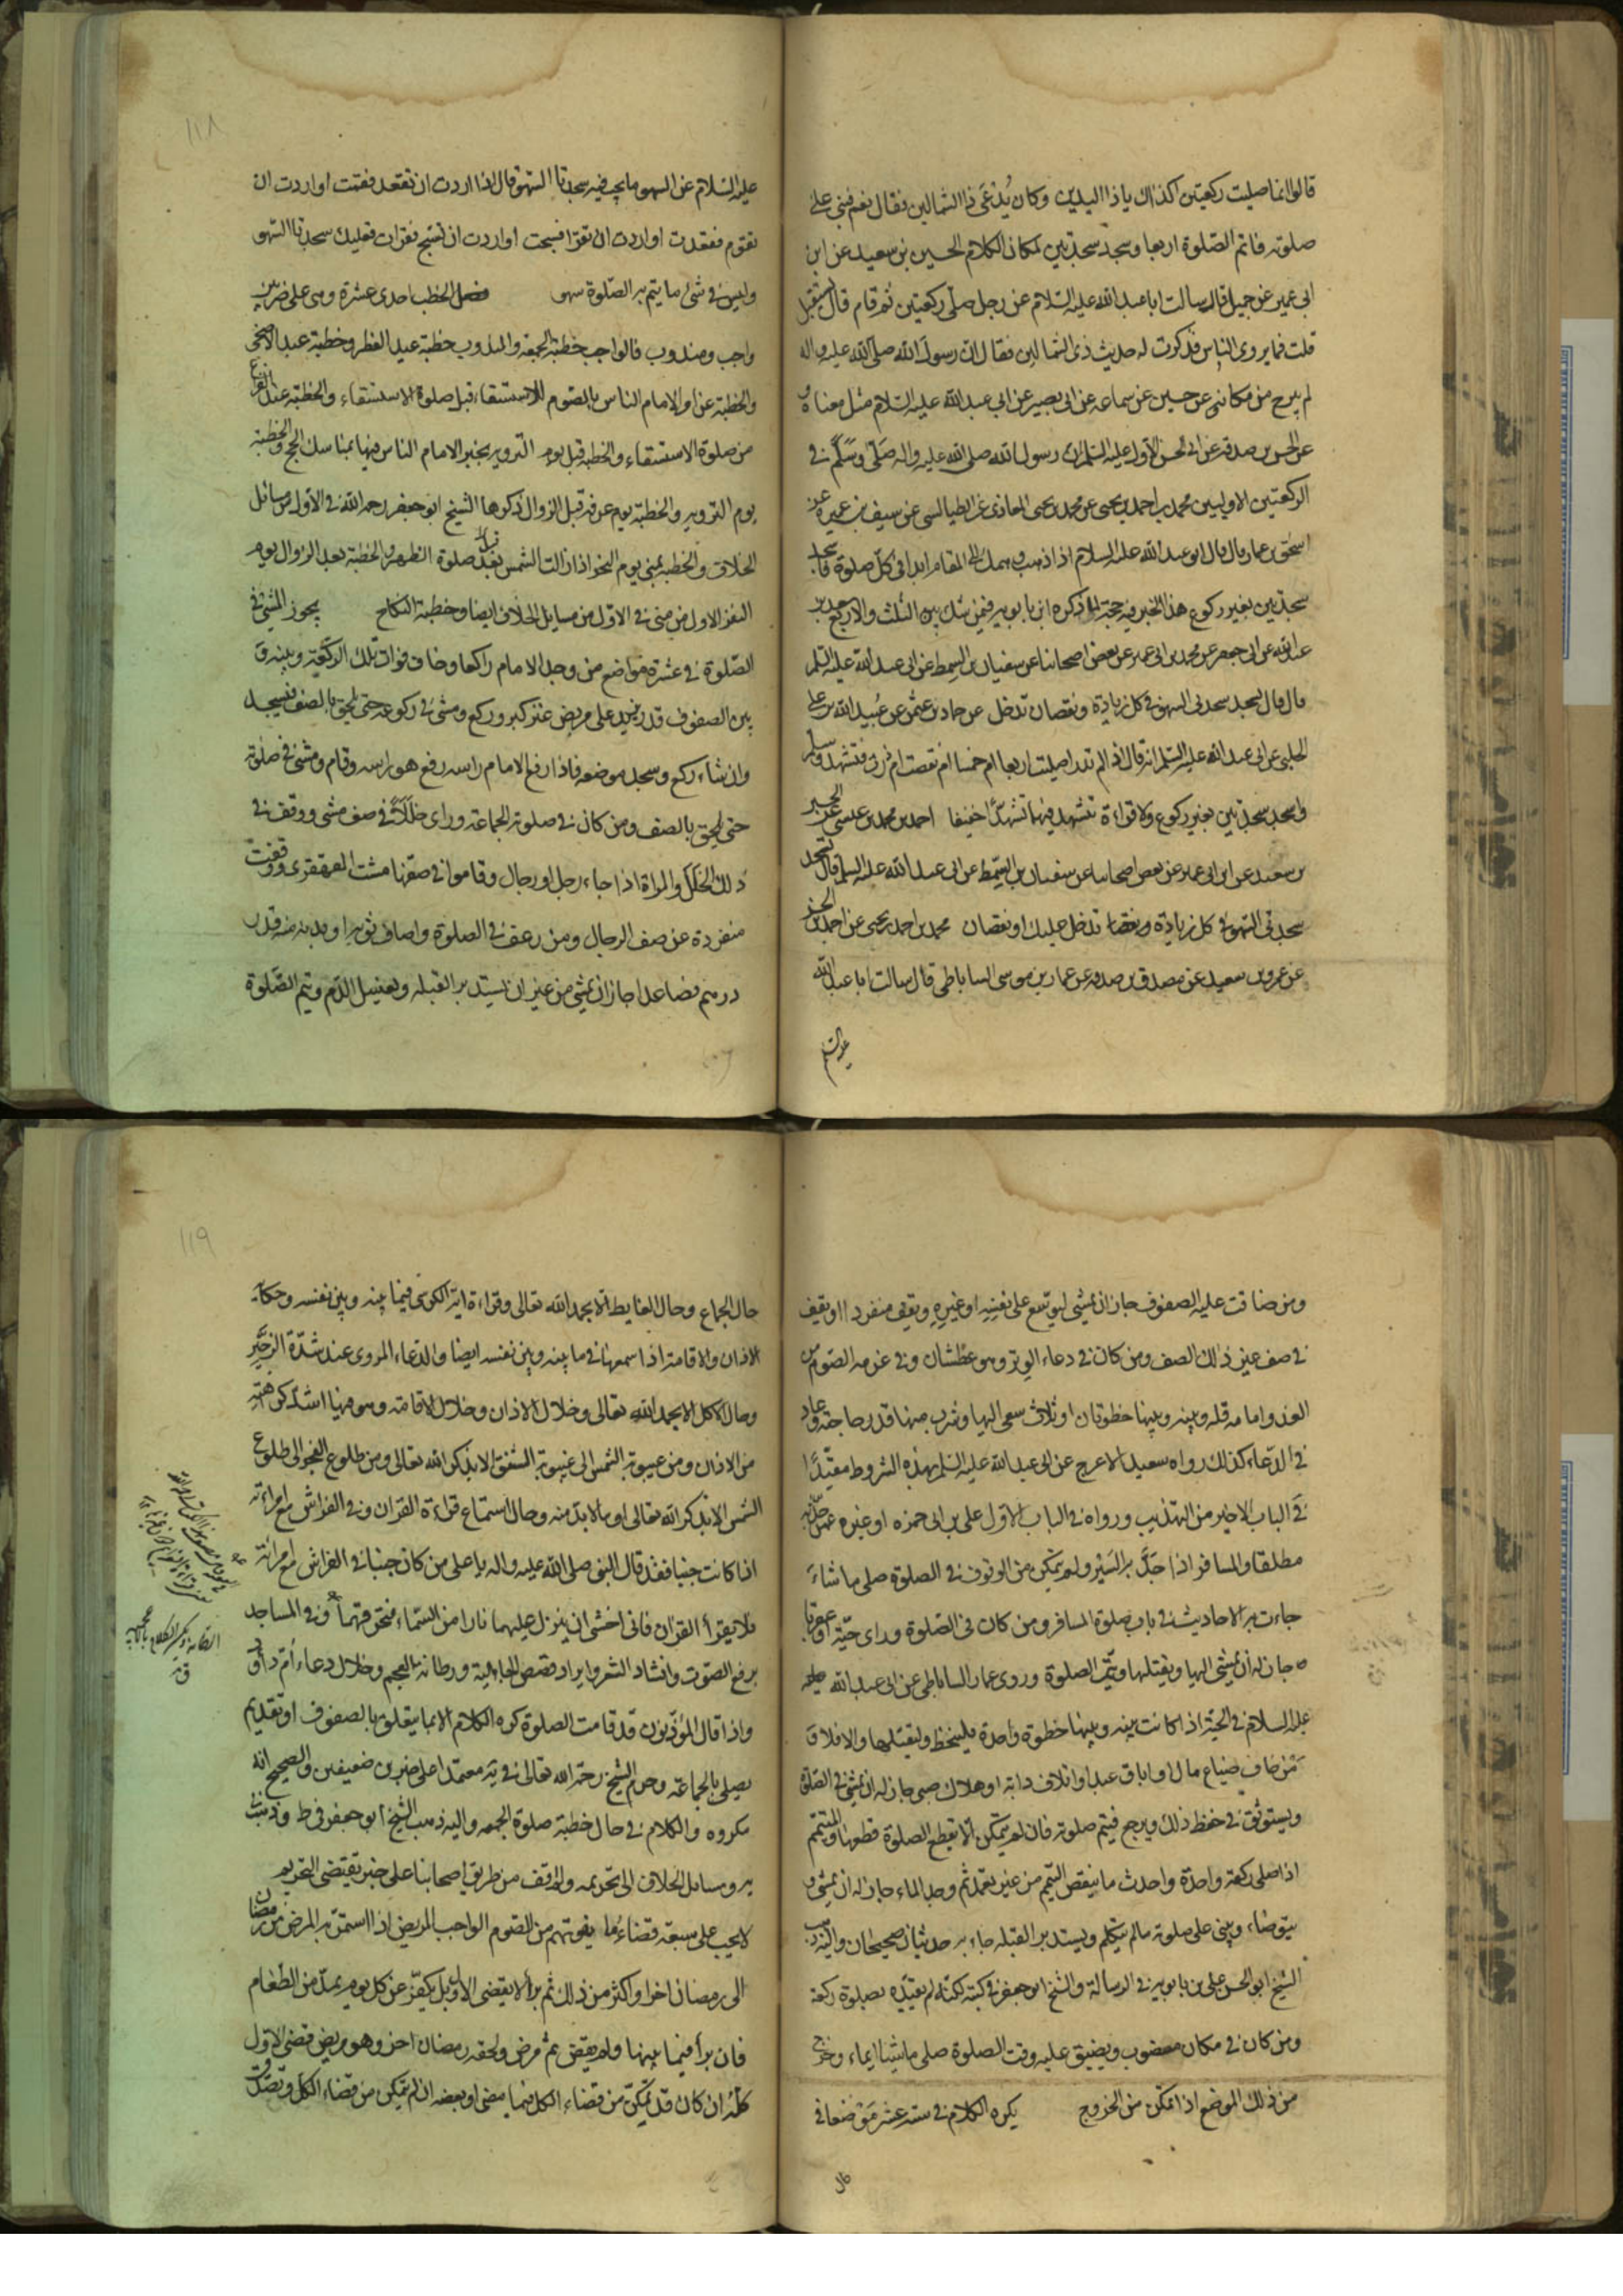 قالوا انما صليت ركعتين اكذاك يا ذا اليدين وكان يُدْعَى ذا الشمالين فقال نعم فبنى على
صلوته فاتم الصّلوة اربعا وسجد سجدتين لمكان الكلام الحسين بن سعيد عن ابن
ابى عمير عن جميل قال سالت ابا عبد الله عليه السّلام عن رجل صلّى ركعتين ثم قام قال يستقبل
قلت فما يروى الناس فذكرت له حديث ذى الشمالين فقال ان رسول الله صلى الله عليه واله
لم يبرح من مكانه عن حسين عن سماعه عن ابى بصير عن ابى عبد الله عليه السّلام مثل معناه
عن الحسن بن صدقه عن ابى الحسن الاول عليه السلم ان رسول الله صلى الله عليه واله صَلّى وسَلَّم فى
الركعتين الاوليين محمد بن احمد بن يحيى عن محمد بن يحيى المعاذى عن الطيالسى عن سيف بن عميره عن
اسحق بن عمار قال قال ابو عبد الله عليه السلام اذا ذهب وهمك الى المقام ابدا فى كل صلوة فاسجد
سجدتين بغير ركوع هذا الخبر فيه حجة لما ذكره ابن بابويه فيمن شك بين الثلث والاربع سعد بن
عبد الله عن ابى جعفر عن محمد بن ابى عمير عن بعض اصحابنا عن سفيان بن السمط عن ابى عبد الله عليه السلم
قال قال يسجد سجدتى السهو فى كل زيادة ونقصان تدخل عن حماد بن عثمن عن عُبيد الله بن على
الحلبى عن ابى عبد الله عليه السّلم انه قال اذا لم تدر اصليت اربعا ام خمسا ام نقصت ام زدت فتشهد وسلم
واسجد سجدتين بغير ركوع ولا قراءة تتشهد فيهما تشهدًا خفيفا احمد بن محمد بن عيسى عن الحسين
بن سعيد عن ابن ابى عمير عن بعض اصحابنا عن سفيان بن السّمط عن ابى عبد الله عليه السلم قال تسجد
سجدتى السّهو فى كل زيادة تدخل عليك او نقصان محمد بن احمد بن يحيى عن احمد بن الحسن
عن عمرو بن سعيد عن مصدق بن صدقه عن عمار بن موسى الساباطى قال سالت ابا عبد الله
عليه السّلم
١١٨
عليه السّلام عن السهو ما يجب فيه سجدتا السّهو قال اذا اردت ان تقعد فقمت او اردت ان
تقوم فقعدت او اردت ان تقرا فسبحت او اردت ان تسبح فقرات فعليك سجدتا السّهو
وليس فى شئ مما يتم به الصّلوة سهو فصل الخطب احدى عشرة وهى على ضربين
واجب ومندوب فالواجب خطبة الجمعة والمندوب خطبة عيد الفطر وخطبة عيد الاضحى
والخطبة عند امر الامام الناس بالصّوم للاستسقاء قبل صلوة الاستسقاء والخطبة عند الفراغ
من صلوة الاستسقاء والخطبة قبل يوم التروية يخبر الامام الناس فيها بمناسك الحج والخطبة
يوم التروية والخطبة يوم عرفه قبل الزوال ذكرها الشيخ ابو جعفر رحمه الله فى الاول من مسائل
الخلاف والخطبة بمنى يوم النحر اذا زالت الشمس بعد صلوة الظهر والخطبة بعد الزوال يوم
النفر الاول من منى فى الاوّل من مسايل الخلاف ايضا وخطبة النكاح يجوز المشى فى
الصّلوة فى عشرة مواضع من وجد الامام راكعا وخاف فوات تلك الركعة وبينه و
بين الصفوف قدر مربض عنز كبر وركع ومشى فى ركوعه حتى يلحق بالصف فيسجد
وان شاء ركع وسجد موضعه فاذا رفع الامام راسه رفع هو راسه وقام ومشى فى صلوته
حتى يلحق بالصف ومن كان فى صلوة الجماعة وراى خللاً فى صف مشى ووقف فى
ذلك الخَلَل والمراة اذا جاء رجل او رجال وقاموا فى صفّها مشت القهقرى ووقفت
منفردة عن صف الرجال ومن رعف فى الصلوة واصاب ثوبه او بدنه منه قدر
درهم فصاعدا جاز ان يمشى من غير ان يستدبر القبله ويغسل الدّم ويتم الصّلوة
ومن ضاقت عليه الصفوف جاز ان يمشى ليوسّع على نفسِه او غيرِهِ ويقف منفردا او يقف
فى صف غير ذلك الصف ومن كان فى دعاء الوتر وهو عطشان وفى عزمه الصّوم من
الغد وامامه قلة وبينه وبينها خطوتان او ثلاث سعى اليها وشرب منها قدر حاجته وعاد
فى الدّعاء كذلك رواه سعيد الاعرج عن ابى عبد الله عليه السّلم بهذه الشروط مقيّدًا
فى الباب الاخير من التهذيب ورواه فى الباب الاوّل على بن ابى حمزه او غيره عمن حدّثه
مطلقا والمسافر اذا جَدَّ به السَيْر ولم يتمكن من الوقوف فى الصلوة صلى ماشياً
جاءت به الاحاديث فى باب صلوة المسافر ومن كان فى الصّلوة وراى حيّة او عقربا
جاز له ان يمشى اليها ويقتلها ويتم الصلوة وروى عمار الساباطى عن ابى عبد الله
عليه السلام فى الحية اذا كانت بينه وبينها خطوة واحدة فليتخط وليقتلها والا فلا و
من خاف ضياع مال او اباق عبد او اتلاف دابة او هلاك صبى جاز له ان يمشى فى الصّلوة
ويستوثق فى حفظ ذلك ويرجع فيتم صلوته فان لم يتمكن الا بقطع الصلوة قطعها والمتيمم
اذا صلى ركعة واحدة واحدث ما ينقض التيمم من غير تعمد ثم وجد الماء جاز له ان يمشى و
يتوضاء ويبنى على صلوته ما لم يتكلم ويستدبر القبله جاء به حديثان صحيحان واليه ذهب
الشيخ ابو الحسن على بن بابويه فى الرسالة والشيخ ابو جعفر فى كتبه لكنه لم يقيّده بصلوة ركعة
ومن كان فى مكان مغصوب ويضيق عليه وقت الصلوة صلى ماشيا ايماء وخرج
من ذلك الموضع اذا تمكن من الخروج يكره الكلام فى ستة عشر موضعا فى
حال
١١٩
حال الجماع وحال الغايط الا بحمد الله تعالى وقراءة اية الكرسى فيما بينه وبين نفسه وحكاية
الاذان والاقامة اذا سمعهما فى ما بينه وبين نفسه ايضا والدعاء المروى عند شدّة الزحِّير
وحال الاكل الا بحمد الله تعالى وخلال الاذان وخلال الاقامة وهو فيها اشدّ كراهيّة
من الاذان ومن غيبوبة الشمس الى غيبوبة الشفق الا بذكر الله تعالى ومن طلوع الفجر الى طلوع
الشمس الا بذكر الله تعالى او ما لا بدّ منه وحال استماع قراءة القران وفى الفراش مع امراته
اذا كانت جنبا فقد قال النبى صلى الله عليه واله يا على من كان جنبا فى الفراش مع امراته
فلا يقرأ القران فانى اخشى ان ينزل عليهما نارا من السّماء فتحرقهما وفى المساجد
برفع الصّوت وانشاد الشعر وايراد قصص الجاهلية ورطانة العجم وخلال دعاء أم داود
واذا قال المؤذن قد قامت الصلوة كره الكلام الا بما يتعلق بالصفوف او تقديم
يصلى بالجماعة وحرم الشيخ رحمه الله تعالى فى يَه معتمدا على خبرين ضعيفين والصحيح انه
مكروه والكلام فى حال خطبة صلوة الجمعه واليه ذهب الشيخ ابو جعفر فى ط وذهب فى
يه ومسايل الخلاف الى تحريمه ولم اقف من طريق اصحابنا على خبر يقتضى التحريم
لا يجب على سبعة قضاء ما يفوتهم من الصّوم الواجب المريض اذا استمرّ به المرض من رمضان
الى رمضان اخر او اكثر من ذلك ثم برأ لا يقضى الاول بل يكفّر عن كل يوم بمدّ من الطعام
فان برأ فيما بينهما ولم يقض ثم مرض ولحقه رمضان اخر وهو مريض قضى الاوّل
كلّه ان كان قد تمكّن من قضاء الكل فيما مضى او بعضه ان لم يتمكن من قضاء الكل وتصدق